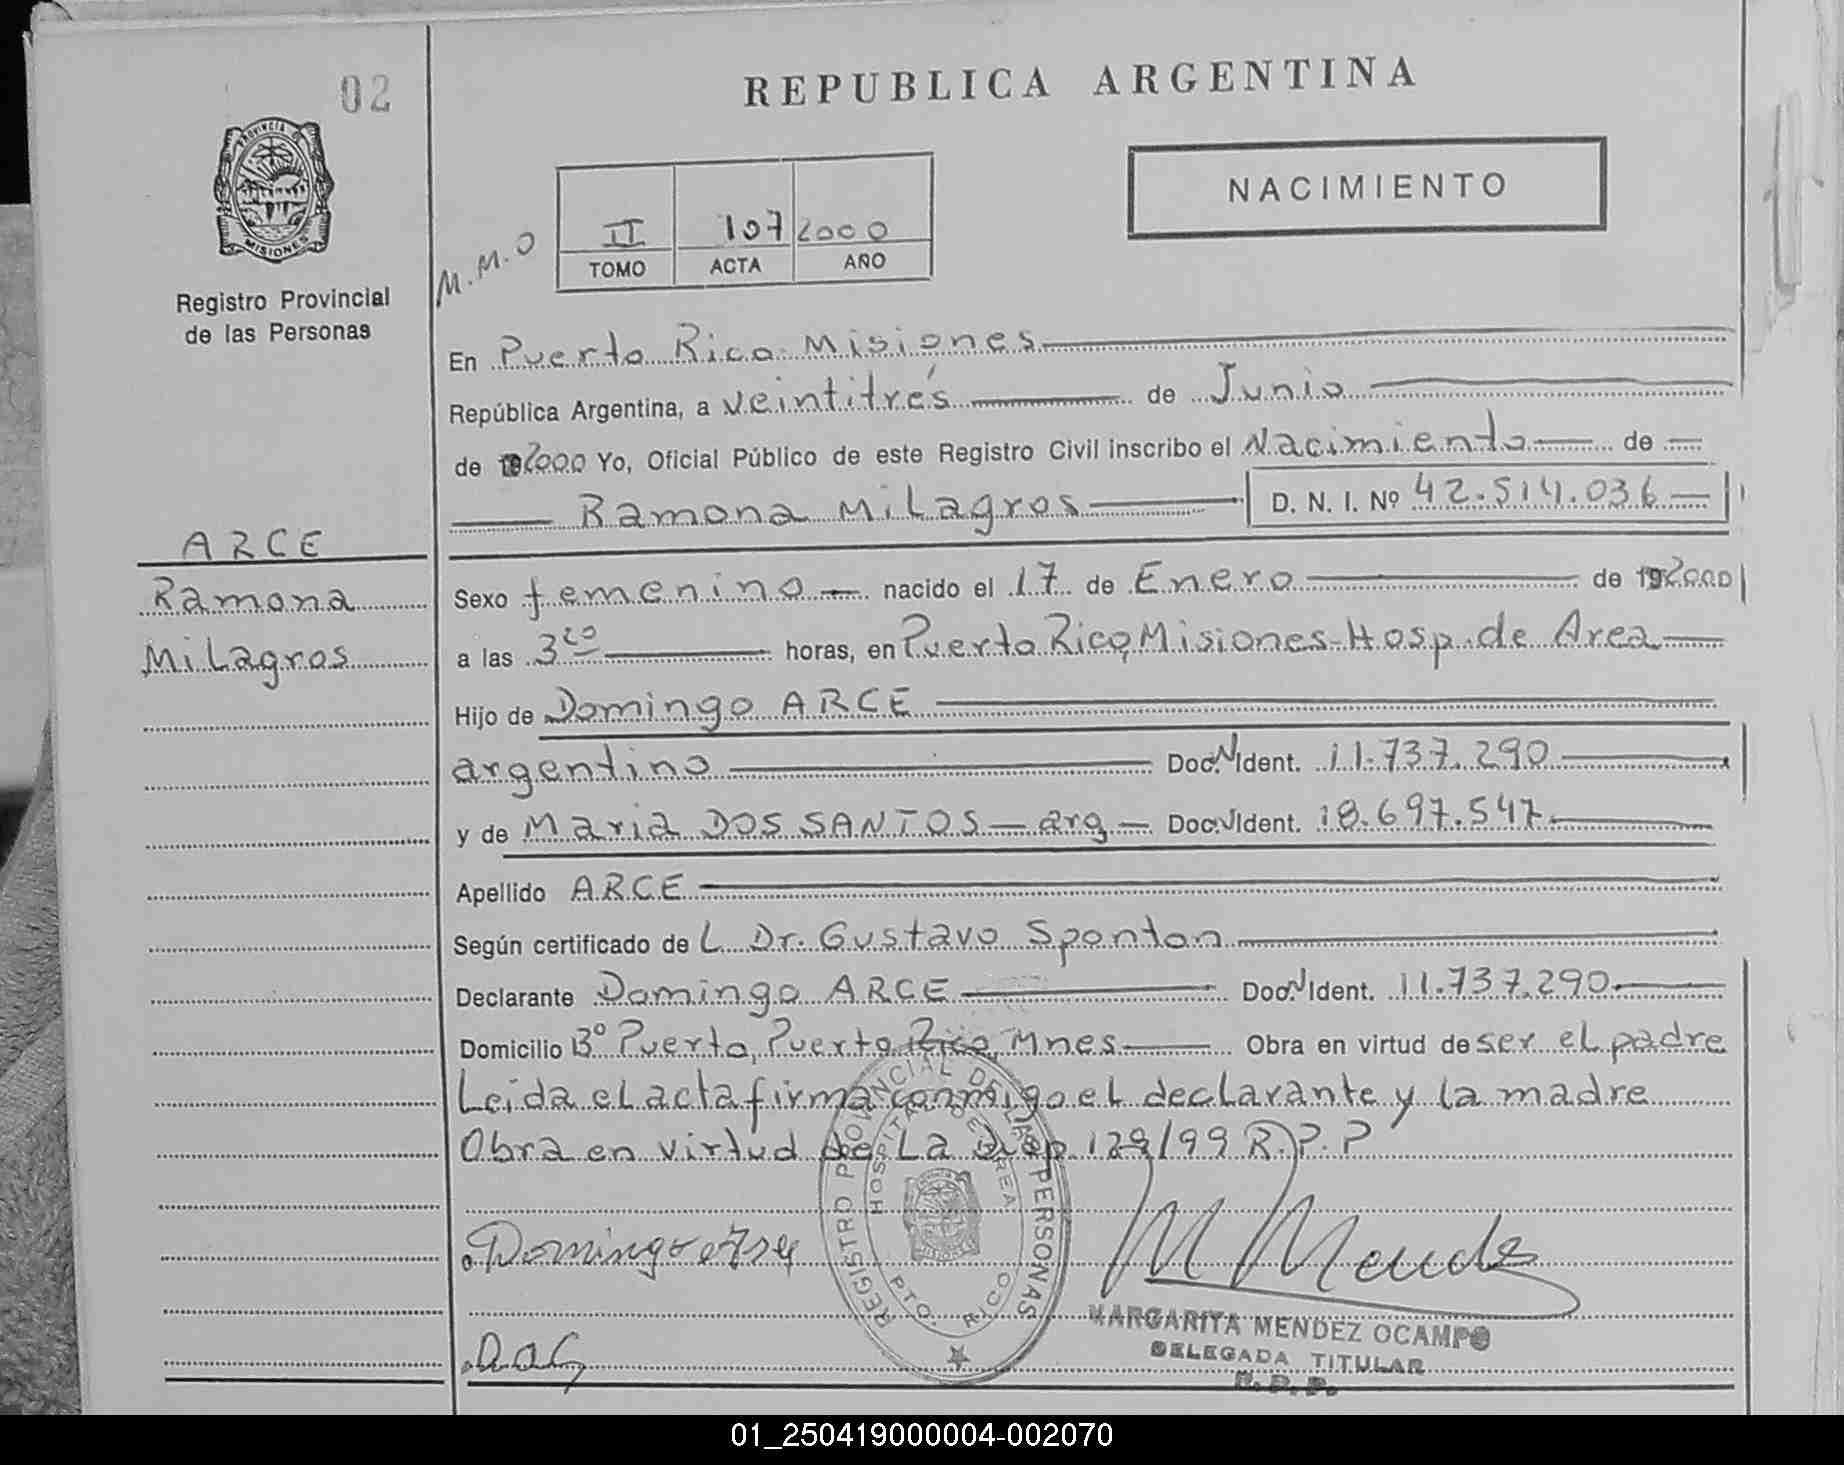 02
REPUBLICA ARGENTINA
PROVINCIA DE
MISIONES
NACIMIENTO
II 107 2000
TOMO ACTA AÑO
M.M.O
Registro Provincial
de las Personas
En Puerto Rico Misiones
República Argentina, a veintitrés de Junio
de 192000 Yo, Oficial Público de este Registro Civil inscribo el Nacimiento de
Ramona Milagros D. N. I. Nº 42.514.036
ARCE
Ramona
Milagros
Sexo femenino nacido el 17 de Enero de 192000
a las 3²⁰ horas, en Puerto Rico, Misiones-Hosp. de Area
Hijo de Domingo ARCE
argentino Doc. N Ident. 11.737.290
y de Maria DOS SANTOS - arg - Doc. N Ident. 18.697.547
Apellido ARCE
Según certificado de L Dr. Gustavo Sponton
Declarante Domingo ARCE Doc. N Ident. 11.737.290
Domicilio Bº Puerto, Puerto Rico, Mnes Obra en virtud de ser el padre
Leida el acta firma conmigo el declarante y la madre
Obra en virtud de La Disp 129/99 R.P.P
REGISTRO PROVINCIAL DE LAS PERSONAS
HOSPITAL DE AREA
PTO. RICO
Domingo Arce
M Mendez
MARGARITA MENDEZ OCAMPO
DELEGADA TITULAR
R. P. P.
01_250419000004-002070